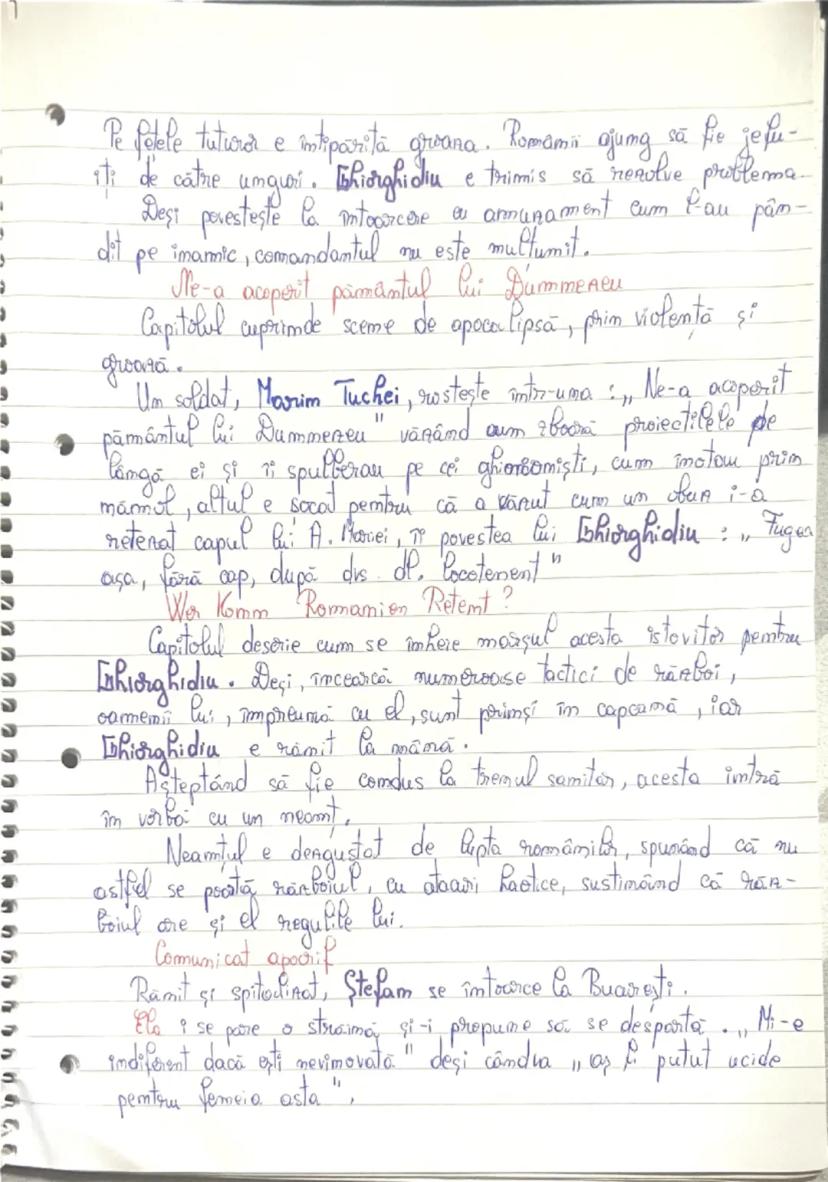 Pe fețele tuturor e întipărită groaza. Românii ajung să fie jefu-
iți de către unguri. Ghiorghidiu e trimis să rezolve problema.
Deși povestește la întoarcere cu amuzament cum l-au pân-
dit pe inamic, comandantul nu este mulțumit.
Ne-a acoperit pământul lui Dummezeu
Capitolul cuprinde scene de apocalipsă, prin violență și
groază.
Un soldat, Marin Tuchei, rostește într-una: „Ne-a acoperit
pământul lui Dummezeu" văzând cum zboară proiectilele pe
lângă ei și îi spulberau pe cei ghiorbomiști, cum înotau prin
mâmol, altul e socat pentru că a văzut cum un obuz i-a
retezat capul lui A. Mariei, îi povestea lui Ghiorghidiu: „Fugea
așa, fără cap, după dvs. dl. locotenent"
Wer Komm Romanien Retent?
Capitolul descrie cum se înheie marșul acesta istovitor pentru
Ghiorghidiu. Deși, încearcă numeroase tactici de război,
oamenii lui, împreună cu el, sunt prinși în capcană, iar
Ghiorghidiu e rănit la mână.
Așteptând să fie condus la trenul sanitar, acesta intră
în vorbă cu un neamț.
Neamțul e dezgustat de lupta românilor, spunând că nu
astfel se poartă războiul, cu atacuri haotice, susținând că răz-
boiul are și el regulile lui.
Comunicat apocrif
Rănit și spitalizat, Ștefan se întoarce la București.
Ela i se pare o străină și-i propune să se despartă. „Mi-e
indiferent dacă ești nevinovată" deși cândva „aș fi putut ucide
pentru femeia asta".